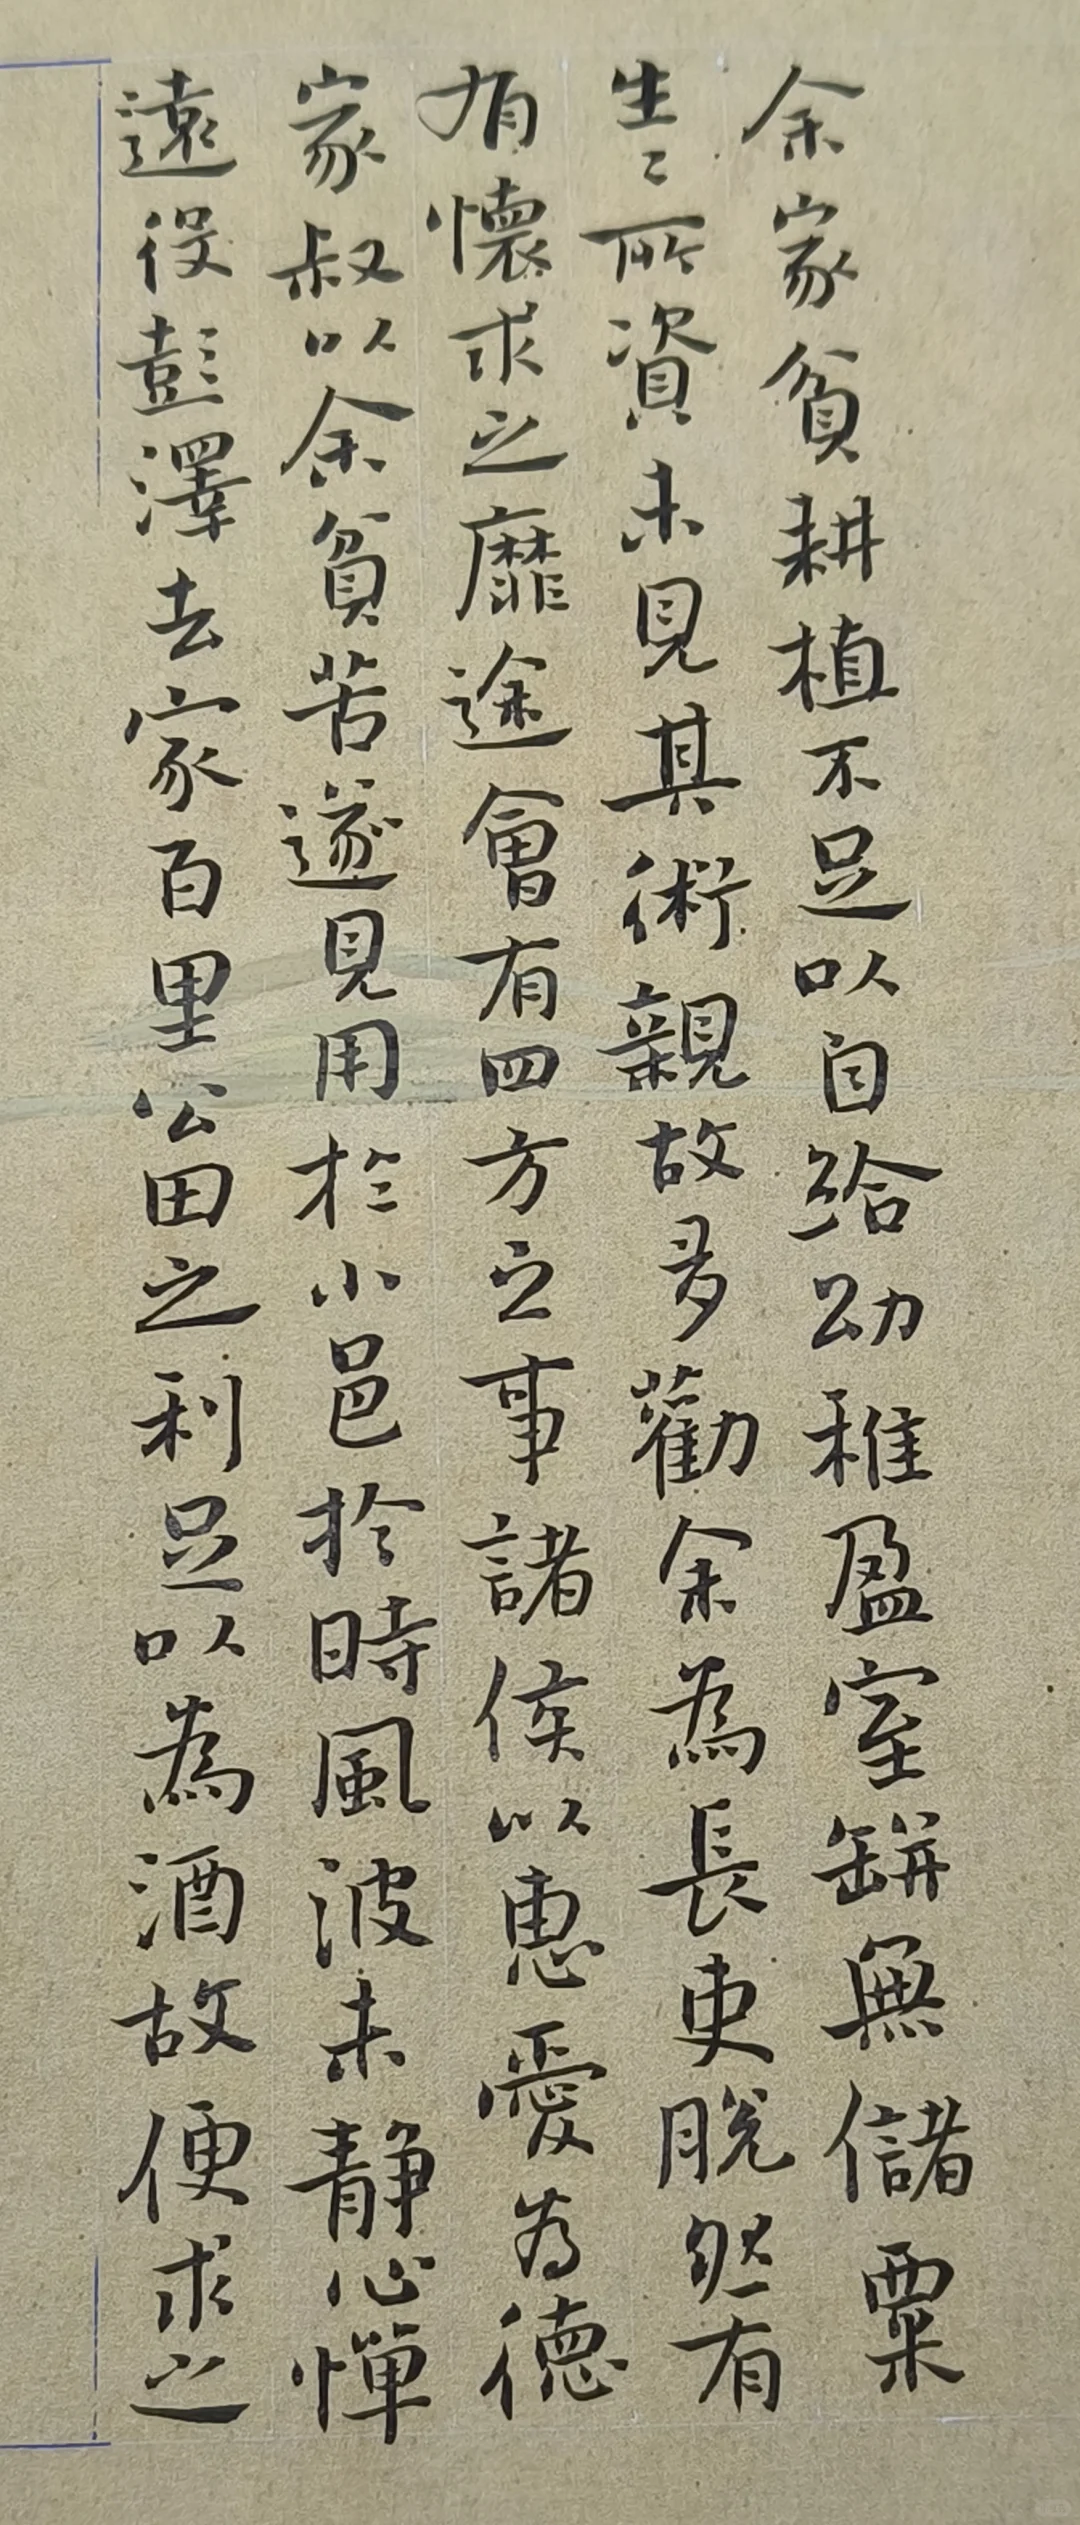 余家貧耕植不足以自給幼稚盈室缾無儲粟
生〻所資未見其術親故多勸余為長吏脫然有
有懷求之靡途會有四方之事諸侯以惠愛為德
家叔以余貧苦遂見用於小邑於時風波未靜心憚
遠役彭澤去家百里公田之利足以為酒故便求之